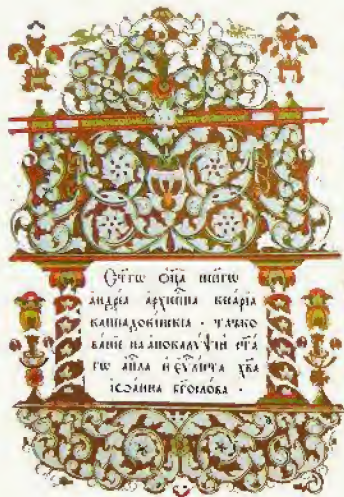 Ст҃гѡ ѻц҃а нш҃егѡ
андреа архіеп҃па кесарїа
каппадокїискїа · тлъко
ванїе на апокалѵ̈ѱїи ст҃а
гѡ ап҃ла и єѵл҃иста хв҃а
іѡанна бг҃ослова ·